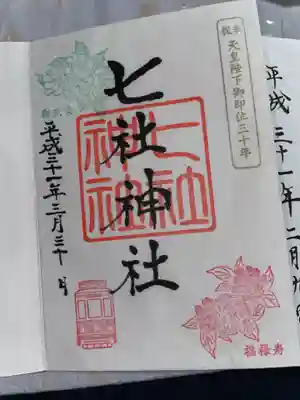 奉祝
天皇陛下御即位三十年
七社神社
七社神社
平成三十一年三月三十日
福禄寿
平成三十一年二月